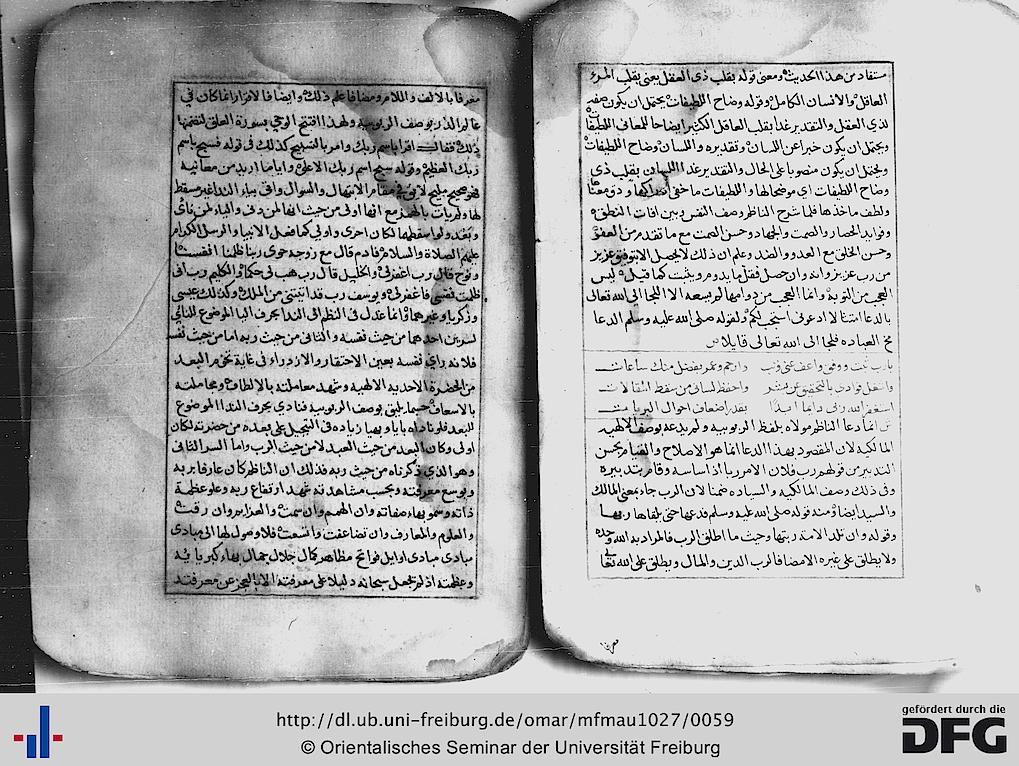 مستفاد من هذا الحديث ومعنى قوله بقلب ذى العقل يعنى بقلب المرء
العاقل والانسان الكامل وقوله وضاح اللطيفات يحتمل ان يكون صفة
لذى العقل والتقدير غدا بقلب العاقل الكثير ايضاحا للمعانى اللطيفا
ويحتمل ان يكون خبرا عن اللسان وتقديره واللسان وضاح اللطيفات
ويحتمل ان يكون منصوبا على الحال والتقدير غدا اللسان بقلب ذى
وضاح اللطيفات اى موضحا لها واللطيفات ما خفى ودق معنا
ولطف ماخذها فلما شرح الناظر وصف النفس وبين افات النطق
وفوايد الحصار والصمت والجهاد وحسن الصمت مع ما تقدم من العفو
وحسن الخلق مع العدو والضد وعلم ان ذلك لا يحصل الا بتوفيق عزيز
من رب عزيز وانه وان حصل فقل ما يدوم ويثبت كما قيل ليس
العجب من التوبة وانما العجب من دوامها لم يسعه الا اللجا الى الله تعالى
بالدعا امتثالا لادعونى استجب لكم ولقوله صلى الله عليه وسلم الدعا
مخ العباده فلجا الى الله تعالى قايلا
يارب ثبت ووفق واعف عنى وتب وارحم وعمر بفضل منك ساعات
واشغل فوادى بالتحقيق عن بشر واحفظ لسانى من سقط المقالات
استغفر الله ربى دايما ابدا بقدر اضعاف احوال البريات
انما دعا الناظر مولاه بلفظ الربوبيه ولم يدعه بوصف الالهية
المالكية لان المقصود بهذا الدعا انما هو الاصلاح والقيام بحسن
التدبير من قولهم رب فلان الامر ربا اذا ساسه وقام بتدبيره
وفى ذلك وصف المالكيه والسياده ضمنا لان الرب جاء بمعنى المالك
والسيد ايضا ومنه قوله صلى الله عليه وسلم فدعها حتى يلقاها ربها
وقوله وان تلد الامة ربتها وحيث ما اطلق الرب فالمراد به الله وحده
ولا يطلق على غيره الا مضافا لرب الدين والمال ويطلق على الله تعا
معرفا
معرفا بالالف واللام ومضافا علم ذلك وايضا فالاقرار انما كان فى
عالم الذر بوصف الربوبيه ولهذا افتتح الوحى بسورة العلق لتضمنها
ذلك فقال اقرا باسم ربك وامر بالتسبيح كذلك فى قوله فسبح باسم
ربك العظيم وقوله سبح اسم ربك الاعلى واياما اريد من معانيه
فهو صحيح مليح لايق فى مقام الابتهال والسوال وافى بياء الندا غير سقط
لها ولم يات بالهمز مع انها اولى من حيث انها لمن دنى والياء لمن نائ
وبعد ولو اسقطها لكان احرى واولى كما فعل الانبيا والرسل الكرام
عليهم الصلاة والسلام فادم قال مع زوجه حوى ربنا ظلمنا انفسنا
ونوح قال رب اغفر لى والخليل قال رب هب لى حكما والكليم رب انى
ظلمت نفسى فاغفر لى ويوسف رب قد اتيتنى من الملك وكذلك عيسى
وزكريا وغيرهما وانما عدل فى النظر الى الندا بحرف اليا الموضوع للنائى
لسرين احدهما من حيث نفسه والثانى من حيث ربه اما من حيث نفسه
فلانه راى نفسه بعين الاحتقار والازدراء فى غاية البعد
من الحضرة الاحديه الالهية وشهد معاملته بالالطاف ومجاملته
بالاسعاف حسبما يليق بوصف الربوبيه فنادى بحرف الندا الموضوع
للبعد فلو ناداه بايا وبهيا زياده فى التسجيل على بعده من حضرته لكان
اولى وكان البعد من حيث العبد لا من حيث الرب واما السر الثانى
وهو الذى ذكرناه من حيث ربه فذلك ان الناظر كان عارفا بربه
وبوسع معرفته وبحسب مشاهدته شهد ارتفاع ربه وعلو عظمة
ذاته وسمو بهاء صفاته وان الهمم وان سمت والعزايم وان رقت
والعلوم والمعارف وان تضاعفت واتسعت فلا وصول لها الى مبادى
مبادى مبادى اوايل فواتح مظاهر كمال جلال جمال بهاء كبريائه
وعظمته اذ لم يجعل سبحانه دليلا على معرفته الا العجز عن معرفته
http://dl.ub.uni-freiburg.de/omar/mfmau1027/0059
© Orientalisches Seminar der Universität Freiburg
gefördert durch die
DFG